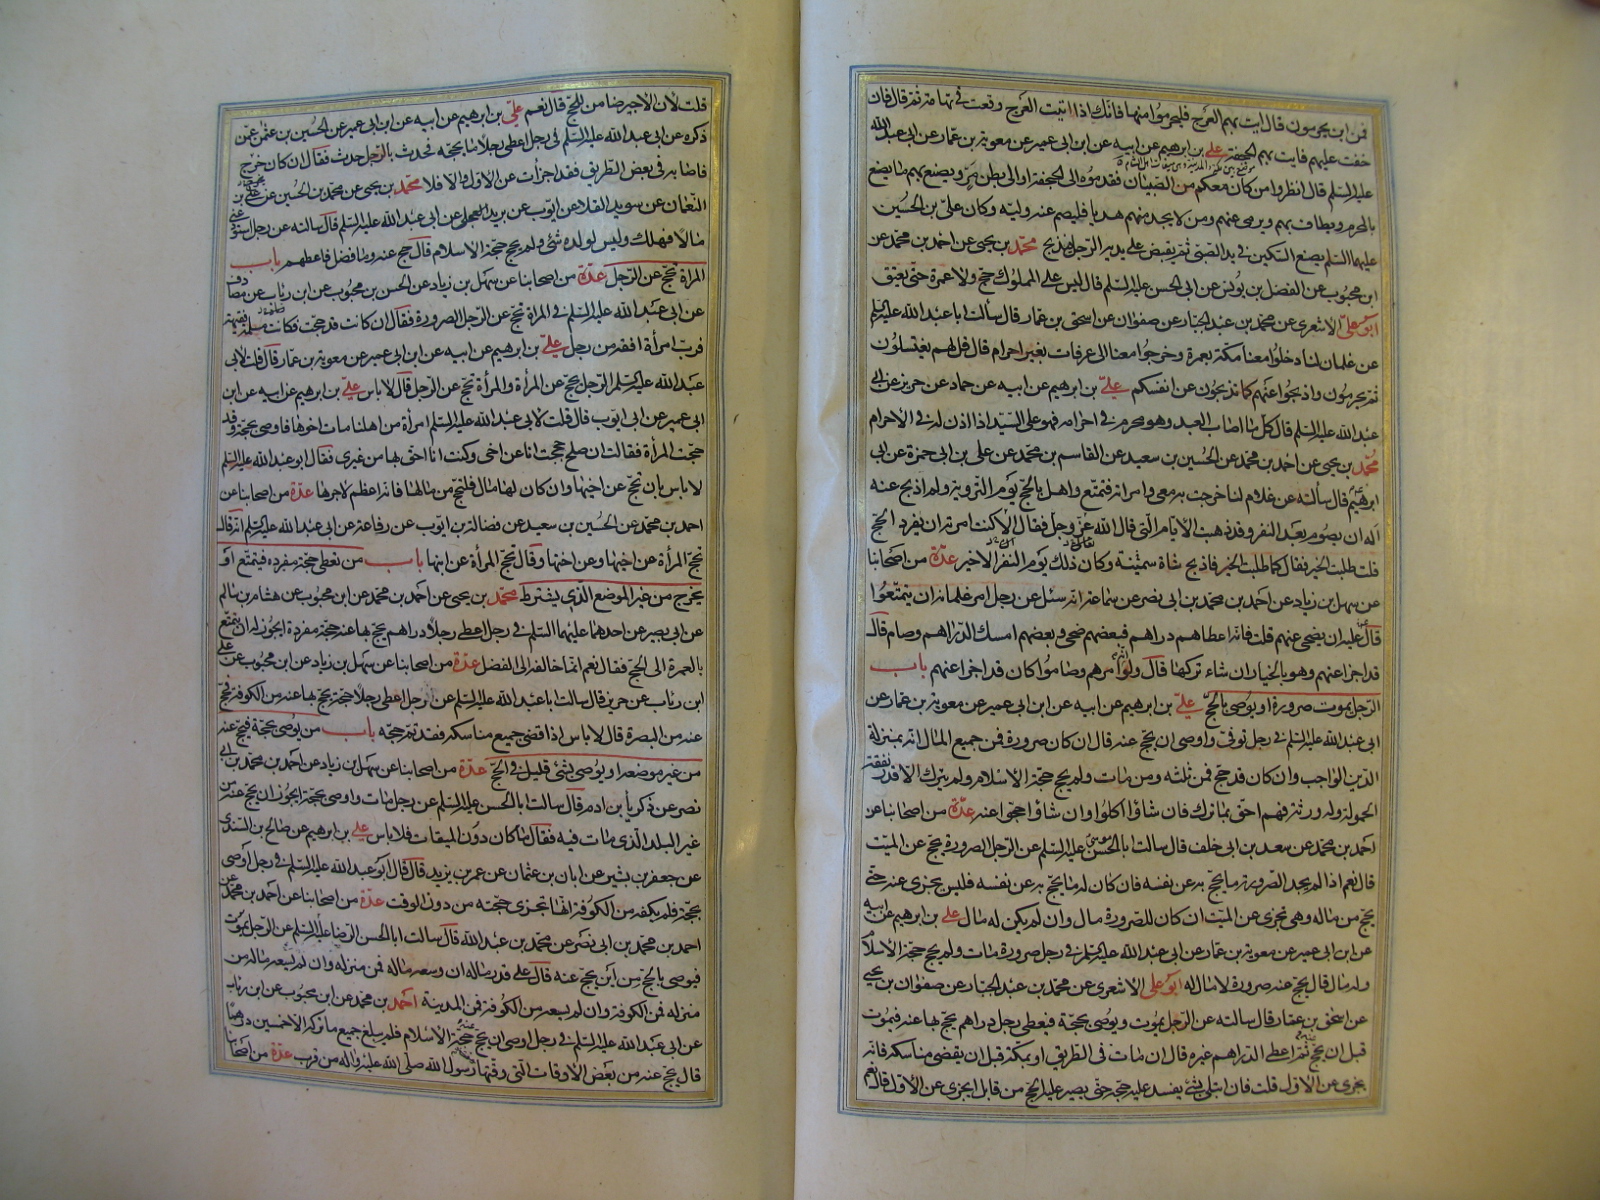 فمن اين يحرمون قال ايت بهم العرج فليحرموا منها فانك اذا اتيت العرج وقعت في تهامة ثم قال فان
خفت عليهم فايت بهم الجحفة علي بن ابرهيم عن ابيه عن ابن ابي عمير عن معوية بن عمار عن ابي عبد الله
عليه السلم قال انظروا من كان معكم من الصبيان فقدموه الى الجحفة او الى بطن مر ويصنع بهم ما يصنع
بالمحرم ويطاف بهم ويرمى عنهم ومن لا يجد منهم هديا فليصم عنه وليه وكان علي بن الحسين
عليهما السلم يضع السكين في يد الصبي ثم يقبض على يديه الرجل فيذبح محمد بن يحيى عن احمد بن محمد عن
ابن محبوب عن الفضل بن يونس عن ابي الحسن عليه السلم قال ليس على المملوك حج ولا عمرة حتى يعتق
ابو علي الاشعري عن محمد بن عبد الجبار عن صفوان عن اسحق بن عمار قال سالت ابا عبد الله عليه السلم
عن غلمان لنا دخلوا معنا مكة بعمرة وخرجوا معنا الى عرفات بغير احرام قال قل لهم يغتسلون
ثم يحرمون واذبحوا عنهم كما تذبحون عن انفسكم علي بن ابرهيم عن ابيه عن حماد عن حريز عن ابي
عبد الله عليه السلم قال كل ما اصاب العبد وهو محرم في احرامه فهو على السيد اذا اذن له في الاحرام
محمد بن يحيى عن احمد بن محمد عن الحسين بن سعيد عن القاسم بن محمد عن علي بن ابي حمزة عن ابي
ابرهيم قال سألته عن غلام لنا خرجت به معي وامرته فتمتع واهل بالحج يوم التروية ولم اذبح عنه
أله ان يصوم بعد النفر وقد ذهبت الايام التي قال الله عز وجل فقال الا كنت امرته ان يفرد الحج
قلت طلبت الخير فقال كما طلبت الخير فاذبح شاة سمينة وكان ذلك يوم النفر الاخير عدة من اصحابنا
عن سهل بن زياد عن احمد بن محمد بن ابي نصر عن سماعة انه سئل عن رجل امر غلمانه ان يتمتعوا
قال عليه ان يضحي عنهم قلت فانه اعطاهم دراهم فبعضهم ضحى وبعضهم امسك الدراهم وصام قال
قد اجزا عنهم وهو بالخيار ان شاء تركها قال ولو انه امرهم وصاموا كان قد اجزا عنهم باب
الرجل يموت صرورة او يوصي بالحج علي بن ابرهيم عن ابيه عن ابن ابي عمير عن معوية بن عمار عن
ابي عبد الله عليه السلم في رجل توفي واوصى ان يحج عنه قال ان كان صرورة فمن جميع المال انه بمنزلة
الدين الواجب وان كان قد حج فمن ثلثه ومن مات ولم يحج حجة الاسلام ولم يترك الا قدر نفقة
الحمولة وله ورثة فهم احق بما ترك فان شاؤا اكلوا وان شاؤا احجوا عنه عدة من اصحابنا عن
احمد بن محمد عن سعد بن ابي خلف قال سالت ابا الحسن موسى عليه السلم عن الرجل الصرورة يحج عن الميت
قال نعم اذا لم يجد الصرورة ما يحج به عن نفسه فان كان له ما يحج به عن نفسه فليس يجزي عنه حتى
يحج من ماله وهي تجزي عن الميت ان كان للصرورة مال وان لم يكن له مال علي بن ابرهيم عن ابيه
عن ابن ابي عمير عن معوية بن عمار عن ابي عبد الله عليه السلم في رجل صرورة مات ولم يحج حجة الاسلام
وله مال قال يحج عنه صرورة لا مال له ابو علي الاشعري عن محمد بن عبد الجبار عن صفوان بن يحيى
عن اسحق بن عمار قال سالته عن الرجل يموت ويوصي بحجة فيعطى رجل دراهم يحج بها عنه فيموت
قبل ان يحج ثم اعطى الدراهم غيره قال ان مات في الطريق او بمكة قبل ان يقضي مناسكه فانه
يجزي عن الاول قلت فان ابتلي بشئ يفسد عليه حجه حتى يصير عليه الحج من قابل ايجزي عن الاول قال نعم
قلت لان الاجير ضامن للحج قال نعم علي بن ابرهيم عن ابيه عن ابن ابي عمير عن الحسين بن عثمن عمن
ذكره عن ابي عبد الله عليه السلم في رجل اعطى رجلا ما يحجه فحدث بالرجل حدث فقال ان كان خرج
فاصابه في بعض الطريق فقد اجزأت عن الاول والا فلا محمد بن يحيى عن محمد بن الحسين عن علي بن
النعمان عن سويد القلا عن ايوب عن بريد العجلي عن ابي عبد الله عليه السلم قال سالته عن رجل استودعني
مالا فهلك وليس لولده شئ ولم يحج حجة الاسلام قال حج عنه وما فضل فاعطهم باب
المراة تحج عن الرجل عدة من اصحابنا عن سهل بن زياد عن الحسن بن محبوب عن ابن رئاب عن مصادف
عن ابي عبد الله عليه السلم في المراة تحج عن الرجل الصرورة فقال ان كانت قد حجت وكانت مسلمة فقيهة
فرب امرأة افقه من رجل علي بن ابرهيم عن ابيه عن ابن ابي عمير عن معوية بن عمار قال قلت لابي
عبد الله عليه السلم الرجل يحج عن المرأة والمرأة تحج عن الرجل قال لا باس علي بن ابرهيم عن ابيه عن ابن
ابي عمير عن ابي ايوب قال قلت لابي عبد الله عليه السلم امرأة من اهلنا مات اخوها فاوصى بحجة وقد
حجت المرأة فقالت ان صلح حججت انا عن اخي وكنت انا احق بها من غيري فقال ابو عبد الله عليه السلم
لا باس بان تحج عن اخيها وان كان لها مال فلتحج من مالها فانه اعظم لاجرها عدة من اصحابنا عن
احمد بن محمد عن الحسين بن سعيد عن فضالة بن ايوب عن رفاعة عن ابي عبد الله عليه السلم انه قال
تحج المرأة عن اخيها وعن اختها وقال تحج المرأة عن ابنها باب من يعطى حجة مفردة فيتمتع او
يخرج من غير الموضع الذي يشترط محمد بن يحيى عن احمد بن محمد عن ابن محبوب عن هشام بن سالم
عن ابي بصير عن احدهما عليهما السلم في رجل اعطى رجلا دراهم يحج بها عنه حجة مفردة ايجوز له ان يتمتع
بالعمرة الى الحج فقال نعم انما خالفه الى الفضل عدة من اصحابنا عن سهل بن زياد عن ابن محبوب عن علي
ابن رئاب عن حريز قال سالت ابا عبد الله عليه السلم عن رجل اعطى رجلا حجة يحج بها عنه من الكوفة فحج
عنه من البصرة قال لا باس اذا قضى جميع مناسكه فقد تم حجه باب من يوصي بحجة فيحج عنه
من غير موضعه او يوصي بشئ قليل في الحج عدة من اصحابنا عن سهل بن زياد عن احمد بن محمد بن ابي
نصر عن زكريا بن ادم قال سالت ابا الحسن عليه السلم عن رجل مات واوصى بحجة ايجوز ان يحج عنه من
غير البلد الذي مات فيه فقال ما كان دون الميقات فلا باس علي بن ابرهيم عن صالح بن السندي
عن جعفر بن بشير عن ابان بن عثمان عن عمر بن يزيد قال قال ابو عبد الله عليه السلم في رجل اوصى
بحجة فلم يكفه من الكوفة انها تجزي حجته من دون الوقت عدة من اصحابنا عن احمد بن محمد عن
احمد بن محمد بن ابي نصر عن محمد بن عبد الله قال سالت ابا الحسن الرضا عليه السلم عن الرجل يموت
فيوصي بالحج من اين يحج عنه قال على قدر ماله ان وسعه ماله فمن منزله وان لم يسعه ماله من
منزله فمن الكوفة وان لم يسعه من الكوفة فمن المدينة احمد بن محمد عن ابن محبوب عن ابن رئاب
عن ابي عبد الله عليه السلم في رجل اوصى ان يحج عنه حجة الاسلام فلم يبلغ جميع ما ترك الا خمسين درهما
قال يحج عنه من بعض الاوقات التي وقتها رسول الله صلى الله عليه واله من قرب عدة من اصحابنا